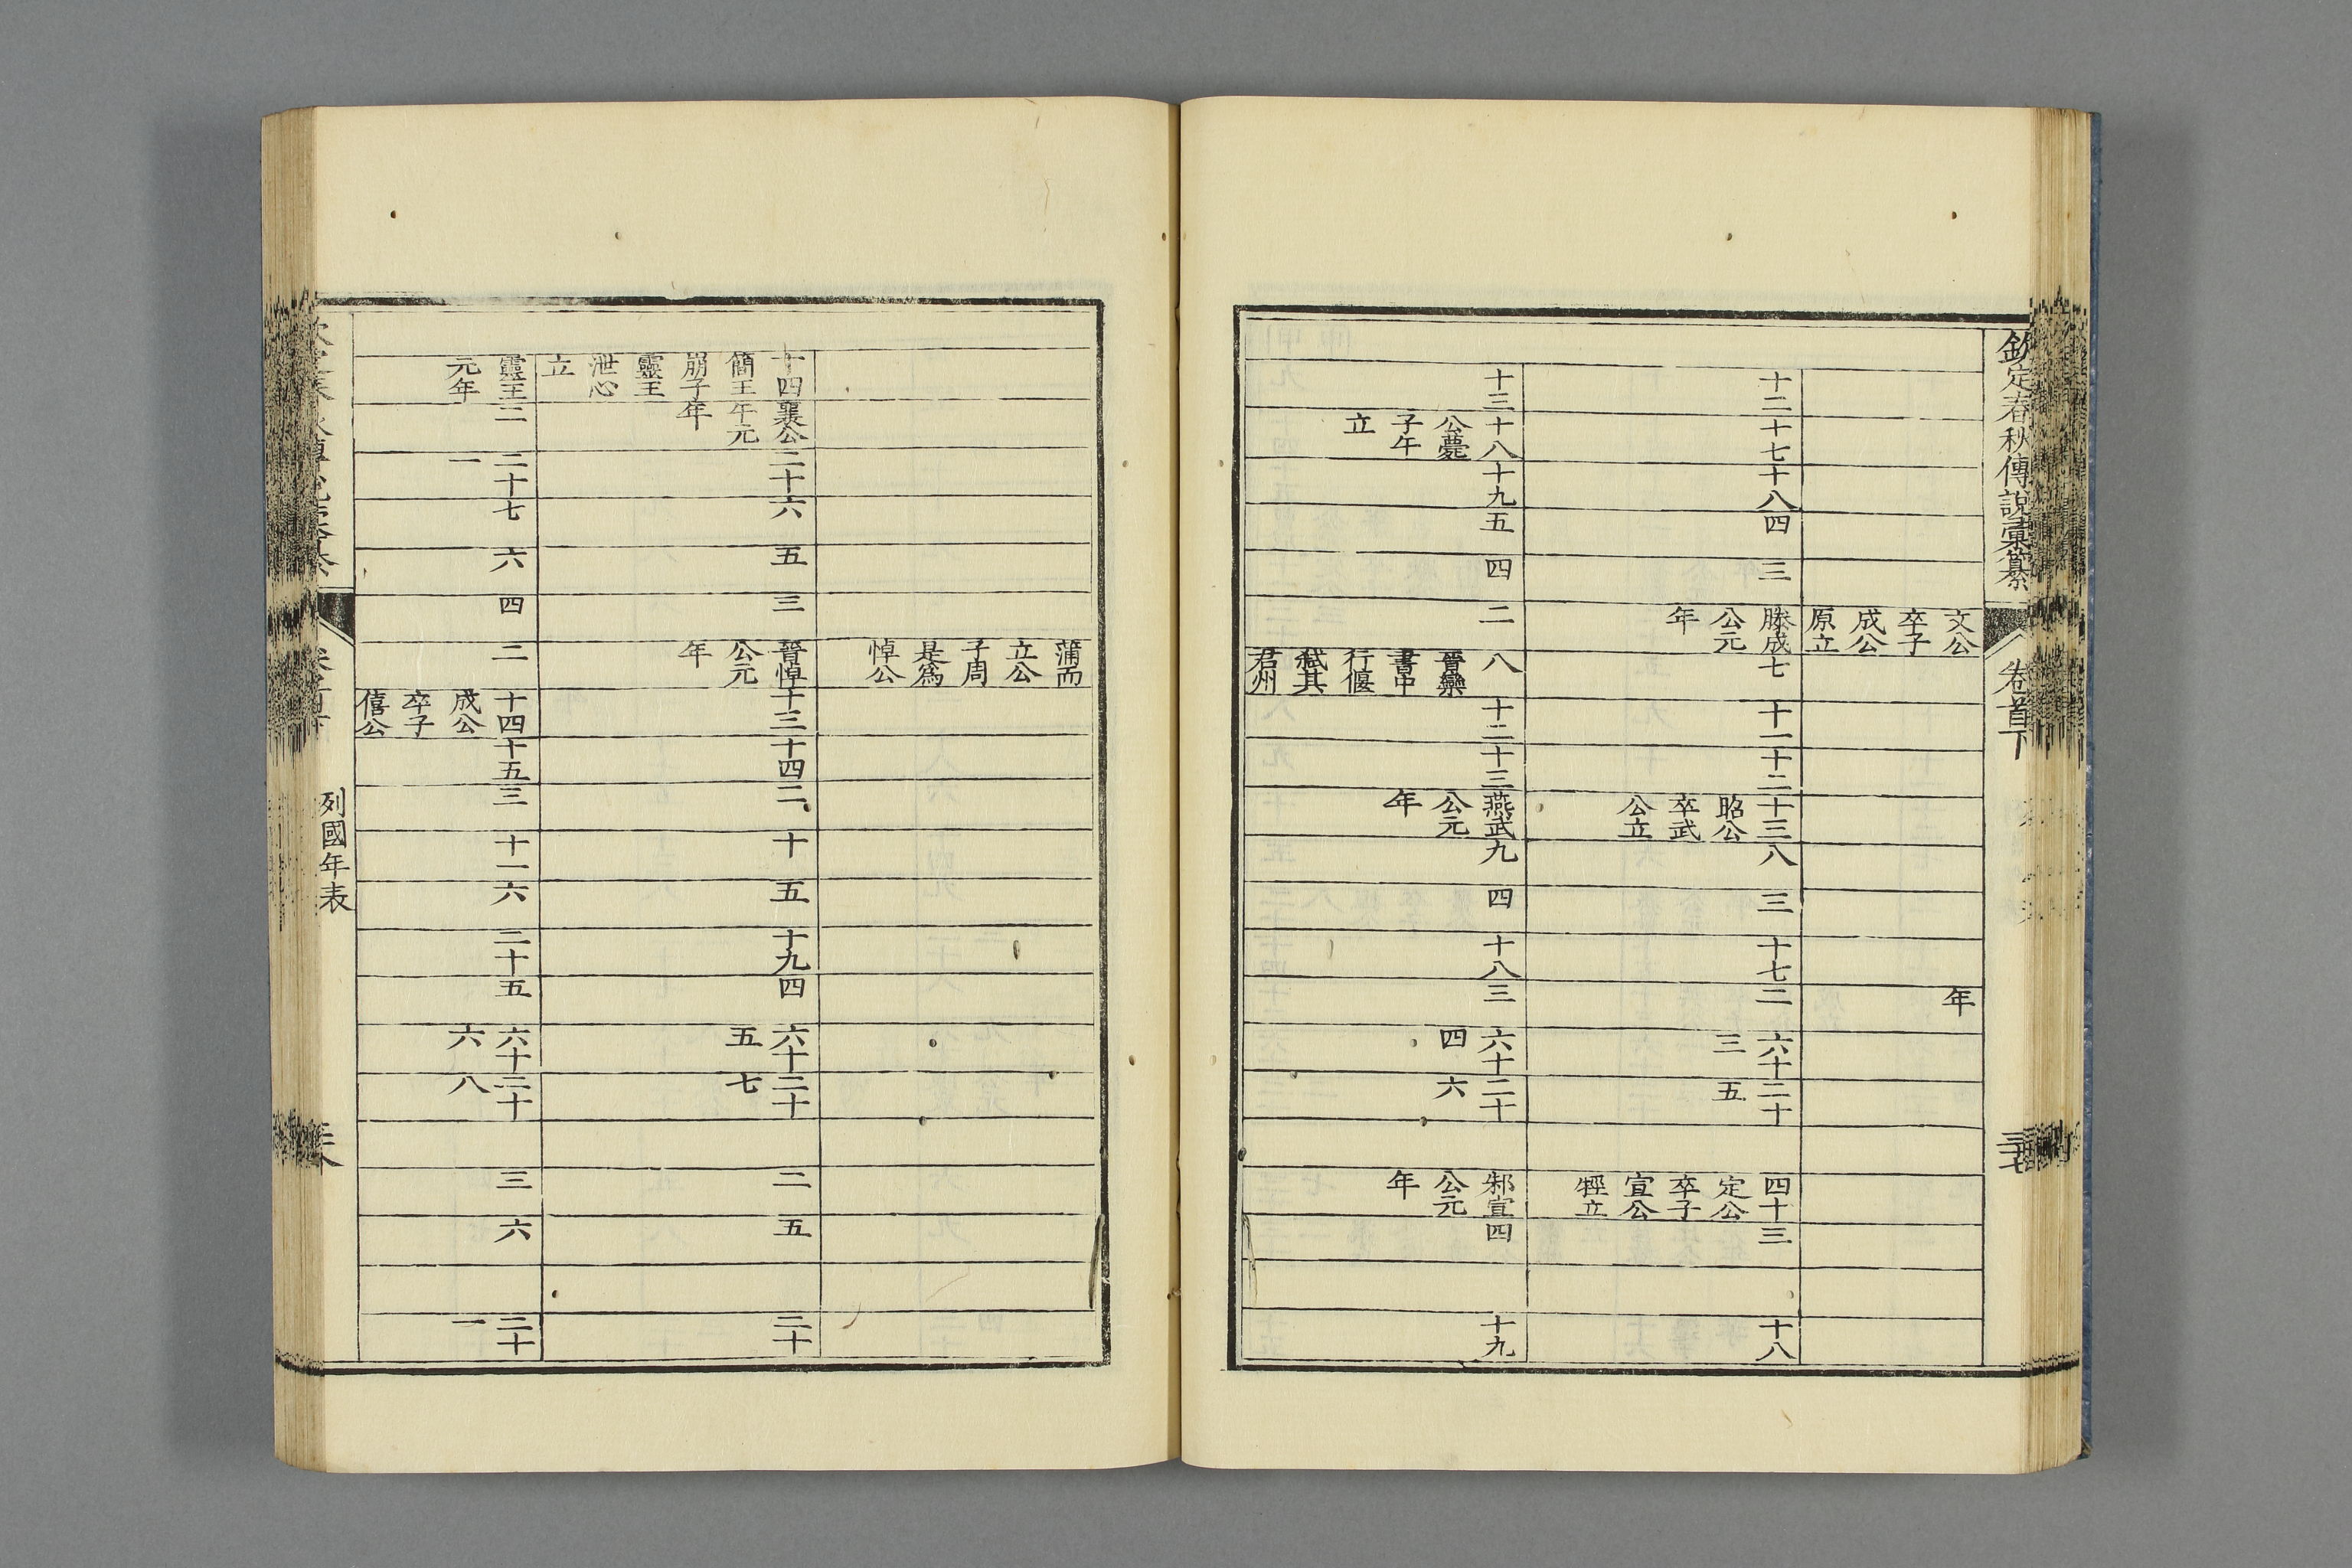 欽定春秋傳說彙纂
卷首下
三十七
文公
卒子
成公
原立
年
十二
十七
十八
四
三
滕成
公元
年
七
十一
十二
十三
昭公
卒武
公立
八
三
十七
二
六十
三
二十
五
四十
定公
卒子
宣公
牼立
三
十八
十三
十八
公薨
子午
立
十九
五
四
二
八
晉欒
書中
行偃
弑其
君州
十二
十三
燕武
公元
年
九
四
十八
三
六十
四
二十
六
邾宣
公元
年
四
十九
蒲而
立公
子周
是爲
悼公
十四
簡王
崩子
靈王
泄心
立
襄公
午元
年
二十六
五
三
晉悼
公元
年
十三
十四
二
十
五
十九
四
六十
五
二十
七
二
五
二十
靈王
元年
二
二十
一
七
六
四
二
十四
成公
卒子
僖公
十五
三
十一
六
二十
五
六十
六
二十
八
三
六
二十
一
列國年表